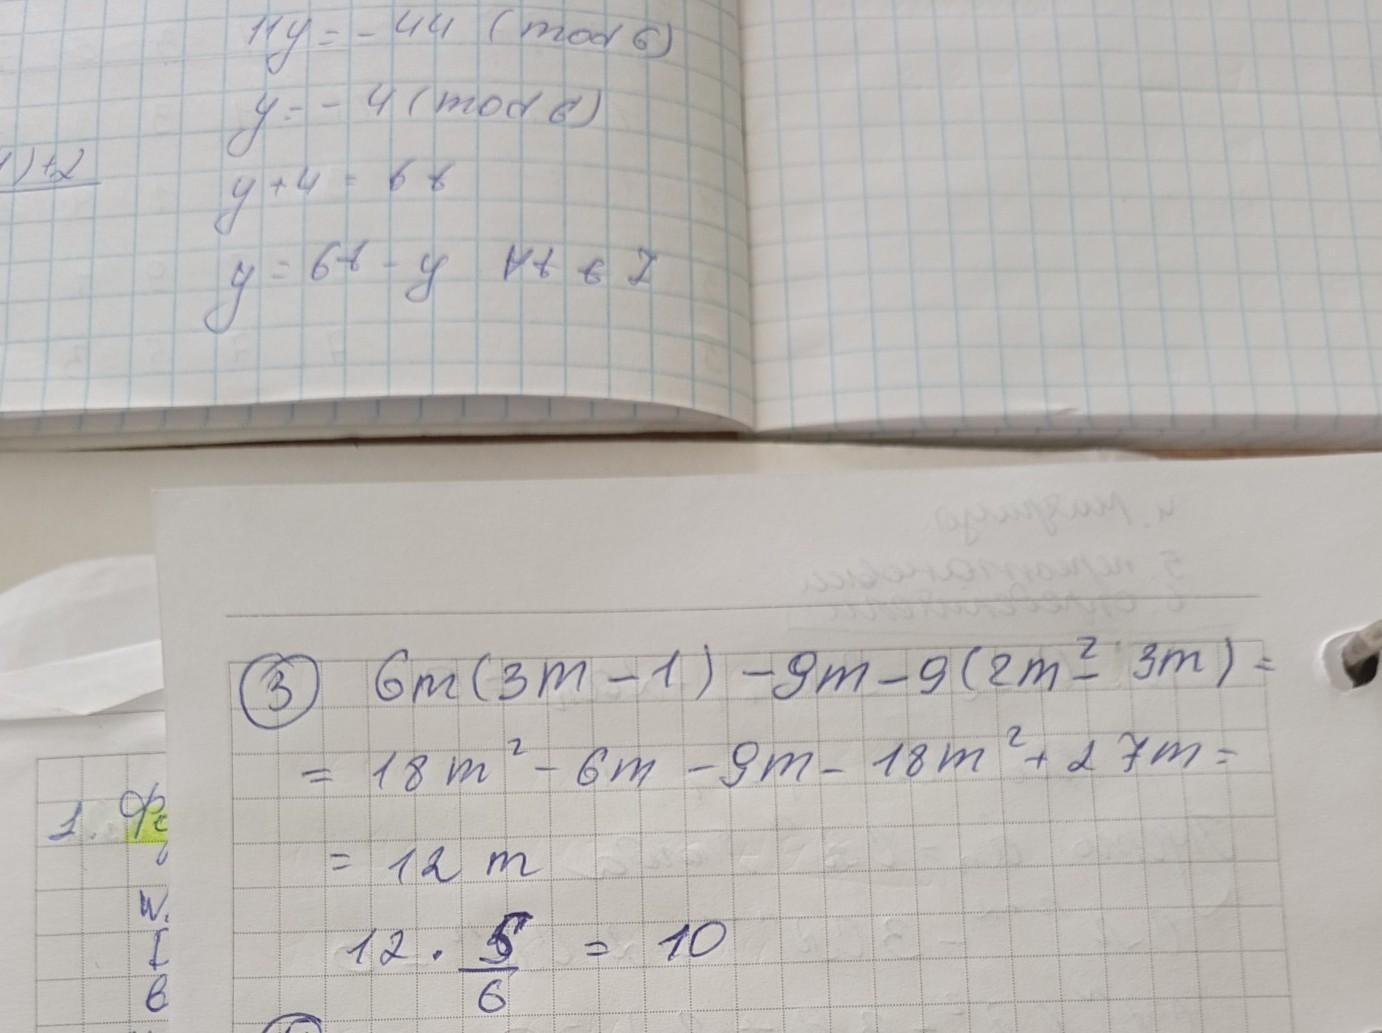 11y = - 44 (mod 6)
y = - 4 (mod 6)
1) + 2
y + 4 = 6t
y = 6t - y ∀t ∈ Z
③ 6m(3m - 1) - 9m - 9(2m² - 3m) =
= 18m² - 6m - 9m - 18m² + 27m =
= 12 m
12 · 5/6 = 10
1.